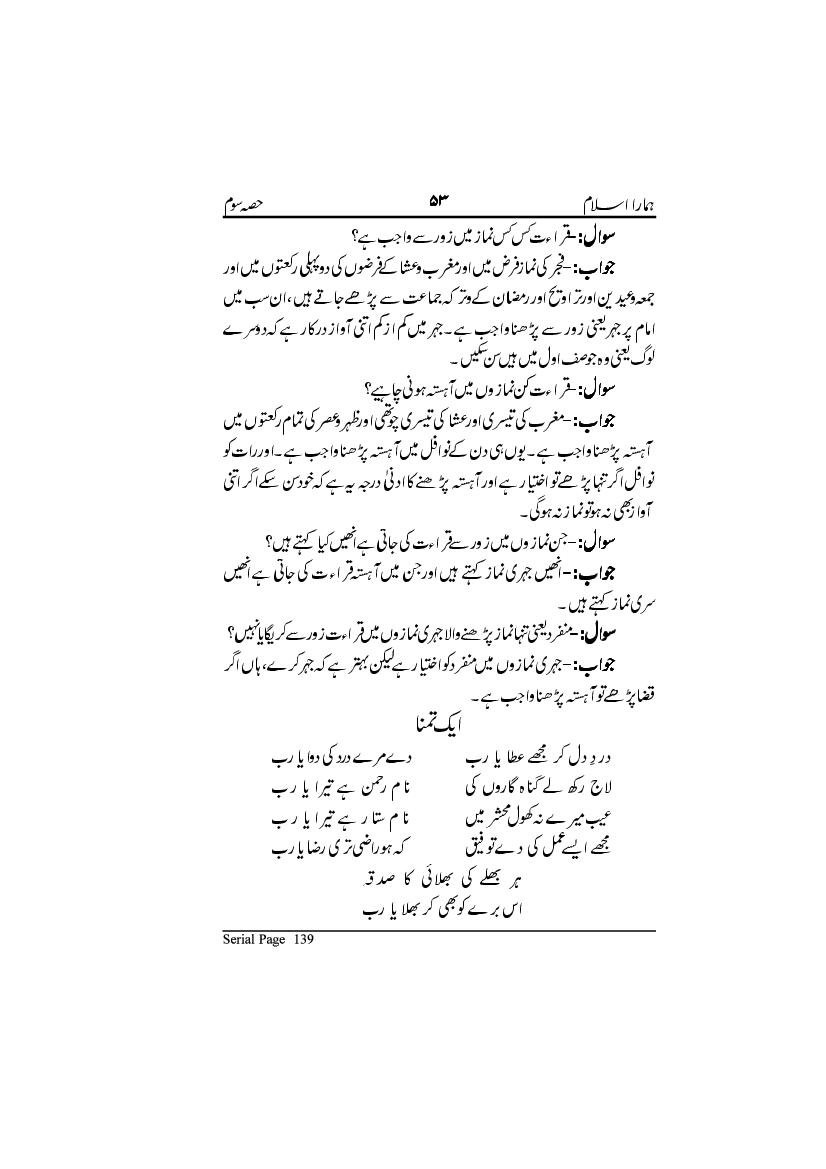 ہمارا اسلام ۵۳ حصہ سوم
سوال:–قراءت کس کس نماز میں زور سے واجب ہے؟
جواب:–فجر کی نماز فرض میں اور مغرب وعشا کے فرضوں کی دو پہلی رکعتوں میں اور
جمعہ وعیدین اور تراویح اور رمضان کے وتر کہ جماعت سے پڑھے جاتے ہیں، ان سب میں
امام پر جہر یعنی زور سے پڑھنا واجب ہے۔ جہر میں کم از کم اتنی آواز درکار ہے کہ دوسرے
لوگ یعنی وہ جو صف اول میں ہیں سن سکیں۔
سوال:–قراءت کن نمازوں میں آہستہ ہونی چاہیے؟
جواب:–مغرب کی تیسری اور عشا کی تیسری چوتھی اور ظہر وعصر کی تمام رکعتوں میں
آہستہ پڑھنا واجب ہے۔ یوں ہی دن کے نوافل میں آہستہ پڑھنا واجب ہے۔ اور رات کو
نوافل اگر تنہا پڑھے تو اختیار ہے اور آہستہ پڑھنے کا ادنیٰ درجہ یہ ہے کہ خود سن سکے اگر اتنی
آواز بھی نہ ہو تو نماز نہ ہوگی۔
سوال:–جن نمازوں میں زور سے قراءت کی جاتی ہے انھیں کیا کہتے ہیں؟
جواب:–انھیں جہری نماز کہتے ہیں اور جن میں آہستہ قراءت کی جاتی ہے انھیں
سری نماز کہتے ہیں۔
سوال:–منفرد یعنی تنہا نماز پڑھنے والا جہری نمازوں میں قراءت زور سے کریگا یا نہیں؟
جواب:–جہری نمازوں میں منفرد کو اختیار ہے لیکن بہتر ہے کہ جہر کرے، ہاں اگر
قضا پڑھے تو آہستہ پڑھنا واجب ہے۔
ایک تمنا
دردِ دل کر مجھے عطا یا رب دے مرے درد کی دوا یا رب
لاج رکھ لے گناہ گاروں کی نام رحمٰن ہے تیرا یا رب
عیب میرے نہ کھول محشر میں نام ستار ہے تیرا یا رب
مجھے ایسے عمل کی دے توفیق کہ ہو راضی تری رضا یا رب
ہر بھلے کی بھلائی کا صدقہ
اس برے کو بھی کر بھلا یا رب
Serial Page 139